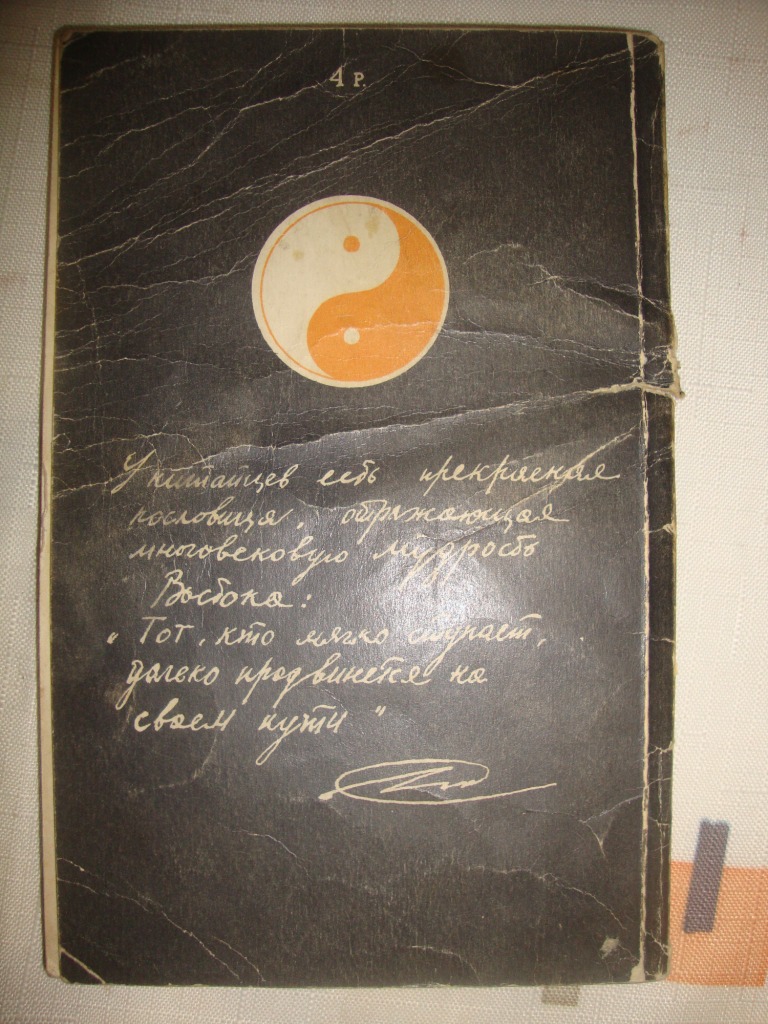 4 р.
У китайцев есть прекрасная
пословица, отражающая
многовековую мудрость
Востока:
„Тот, кто мягко ступает,
далеко продвинется на
своем пути"